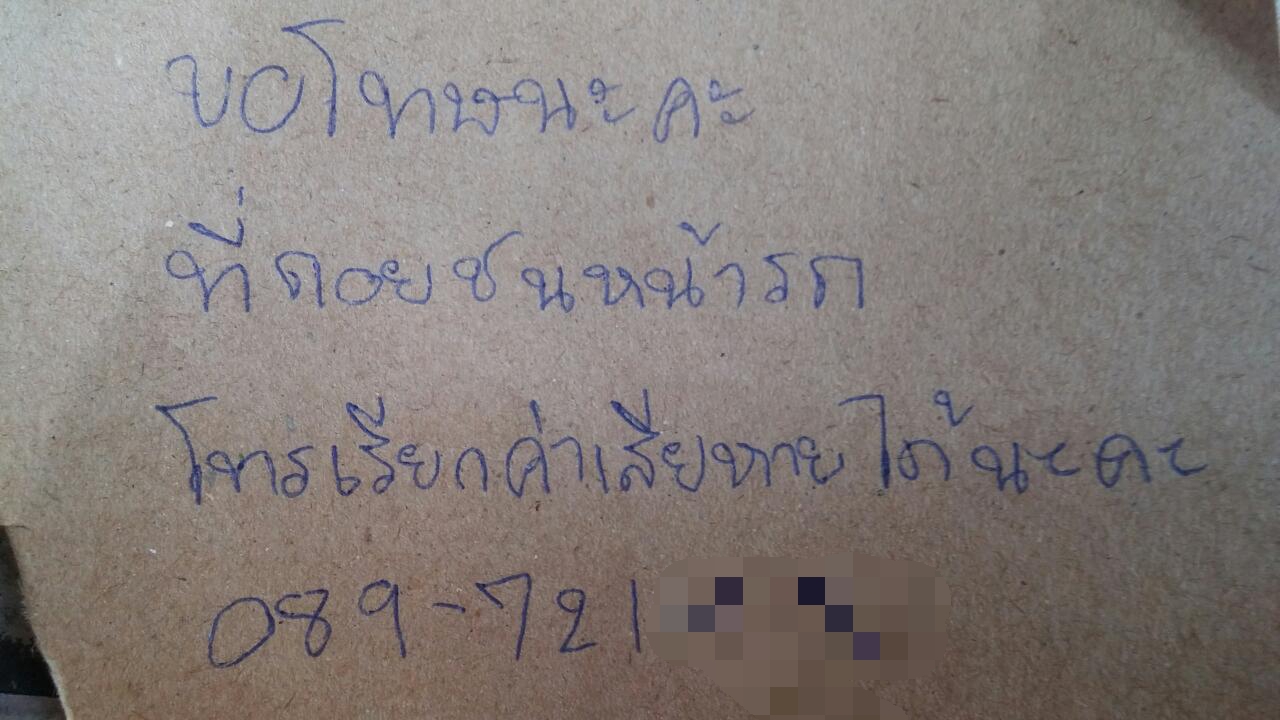 ขอโทษนะคะ
ที่ถอยชนหน้ารถ
โทรเรียกค่าเสียหายได้นะคะ
089-721